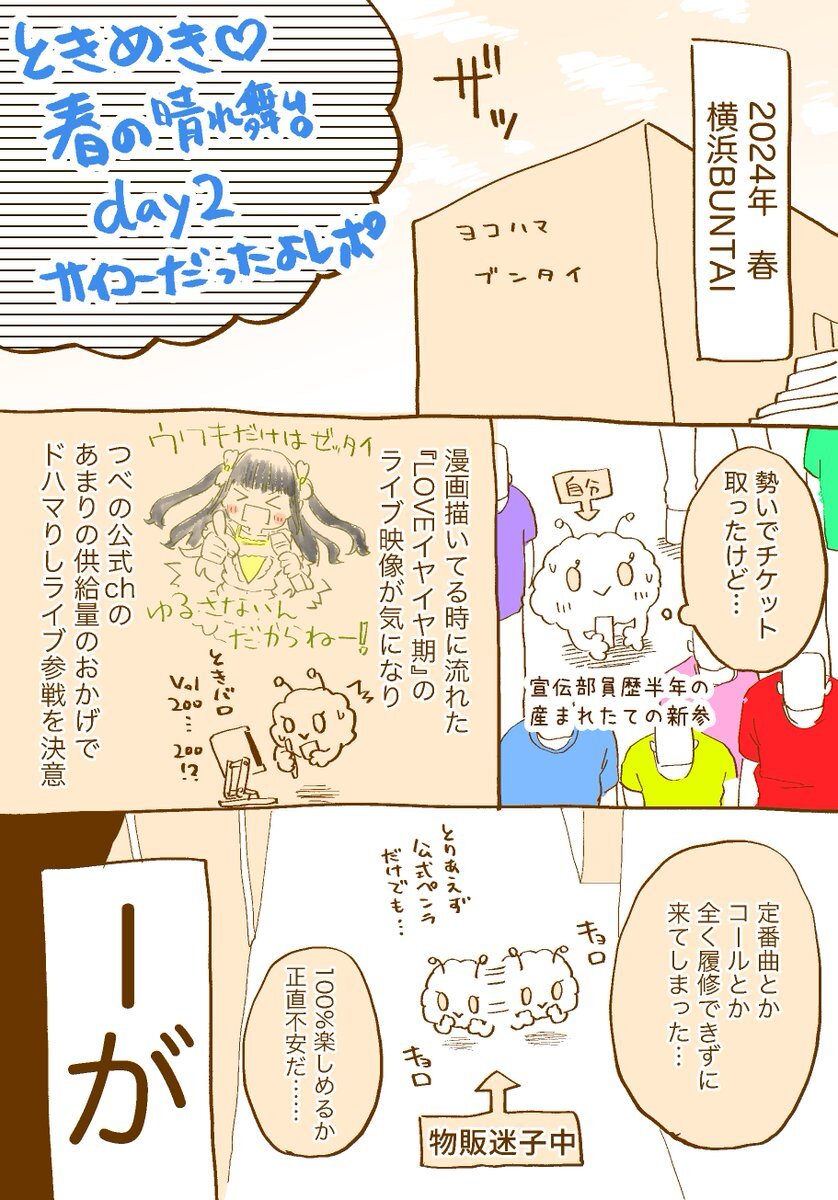 ときめき♡
春の晴れ舞台
day2
サイコーだったよレポ
ザッ
2024年 春
横浜BUNTAI
ヨコハマ
ブンタイ
勢いでチケット
取ったけど…
自分
宣伝部員歴半年の
産まれたての新参
漫画描いてる時に流れた
『LOVEイヤイヤ期』の
ライブ映像が気になり
ウワキだけはゼッタイ
ゆるさないん
だからねー!
ときバロ
Vol
200…
200
!?
つべの公式chの
あまりの供給量のおかげで
ドハマりしライブ参戦を決意
定番曲とか
コールとか
全く履修できずに
来てしまった…
とりあえず
公式ペンラ
だけでも…
キョロ
キョロ
物販迷子中
100%楽しめるか
正直不安だ……
ーが